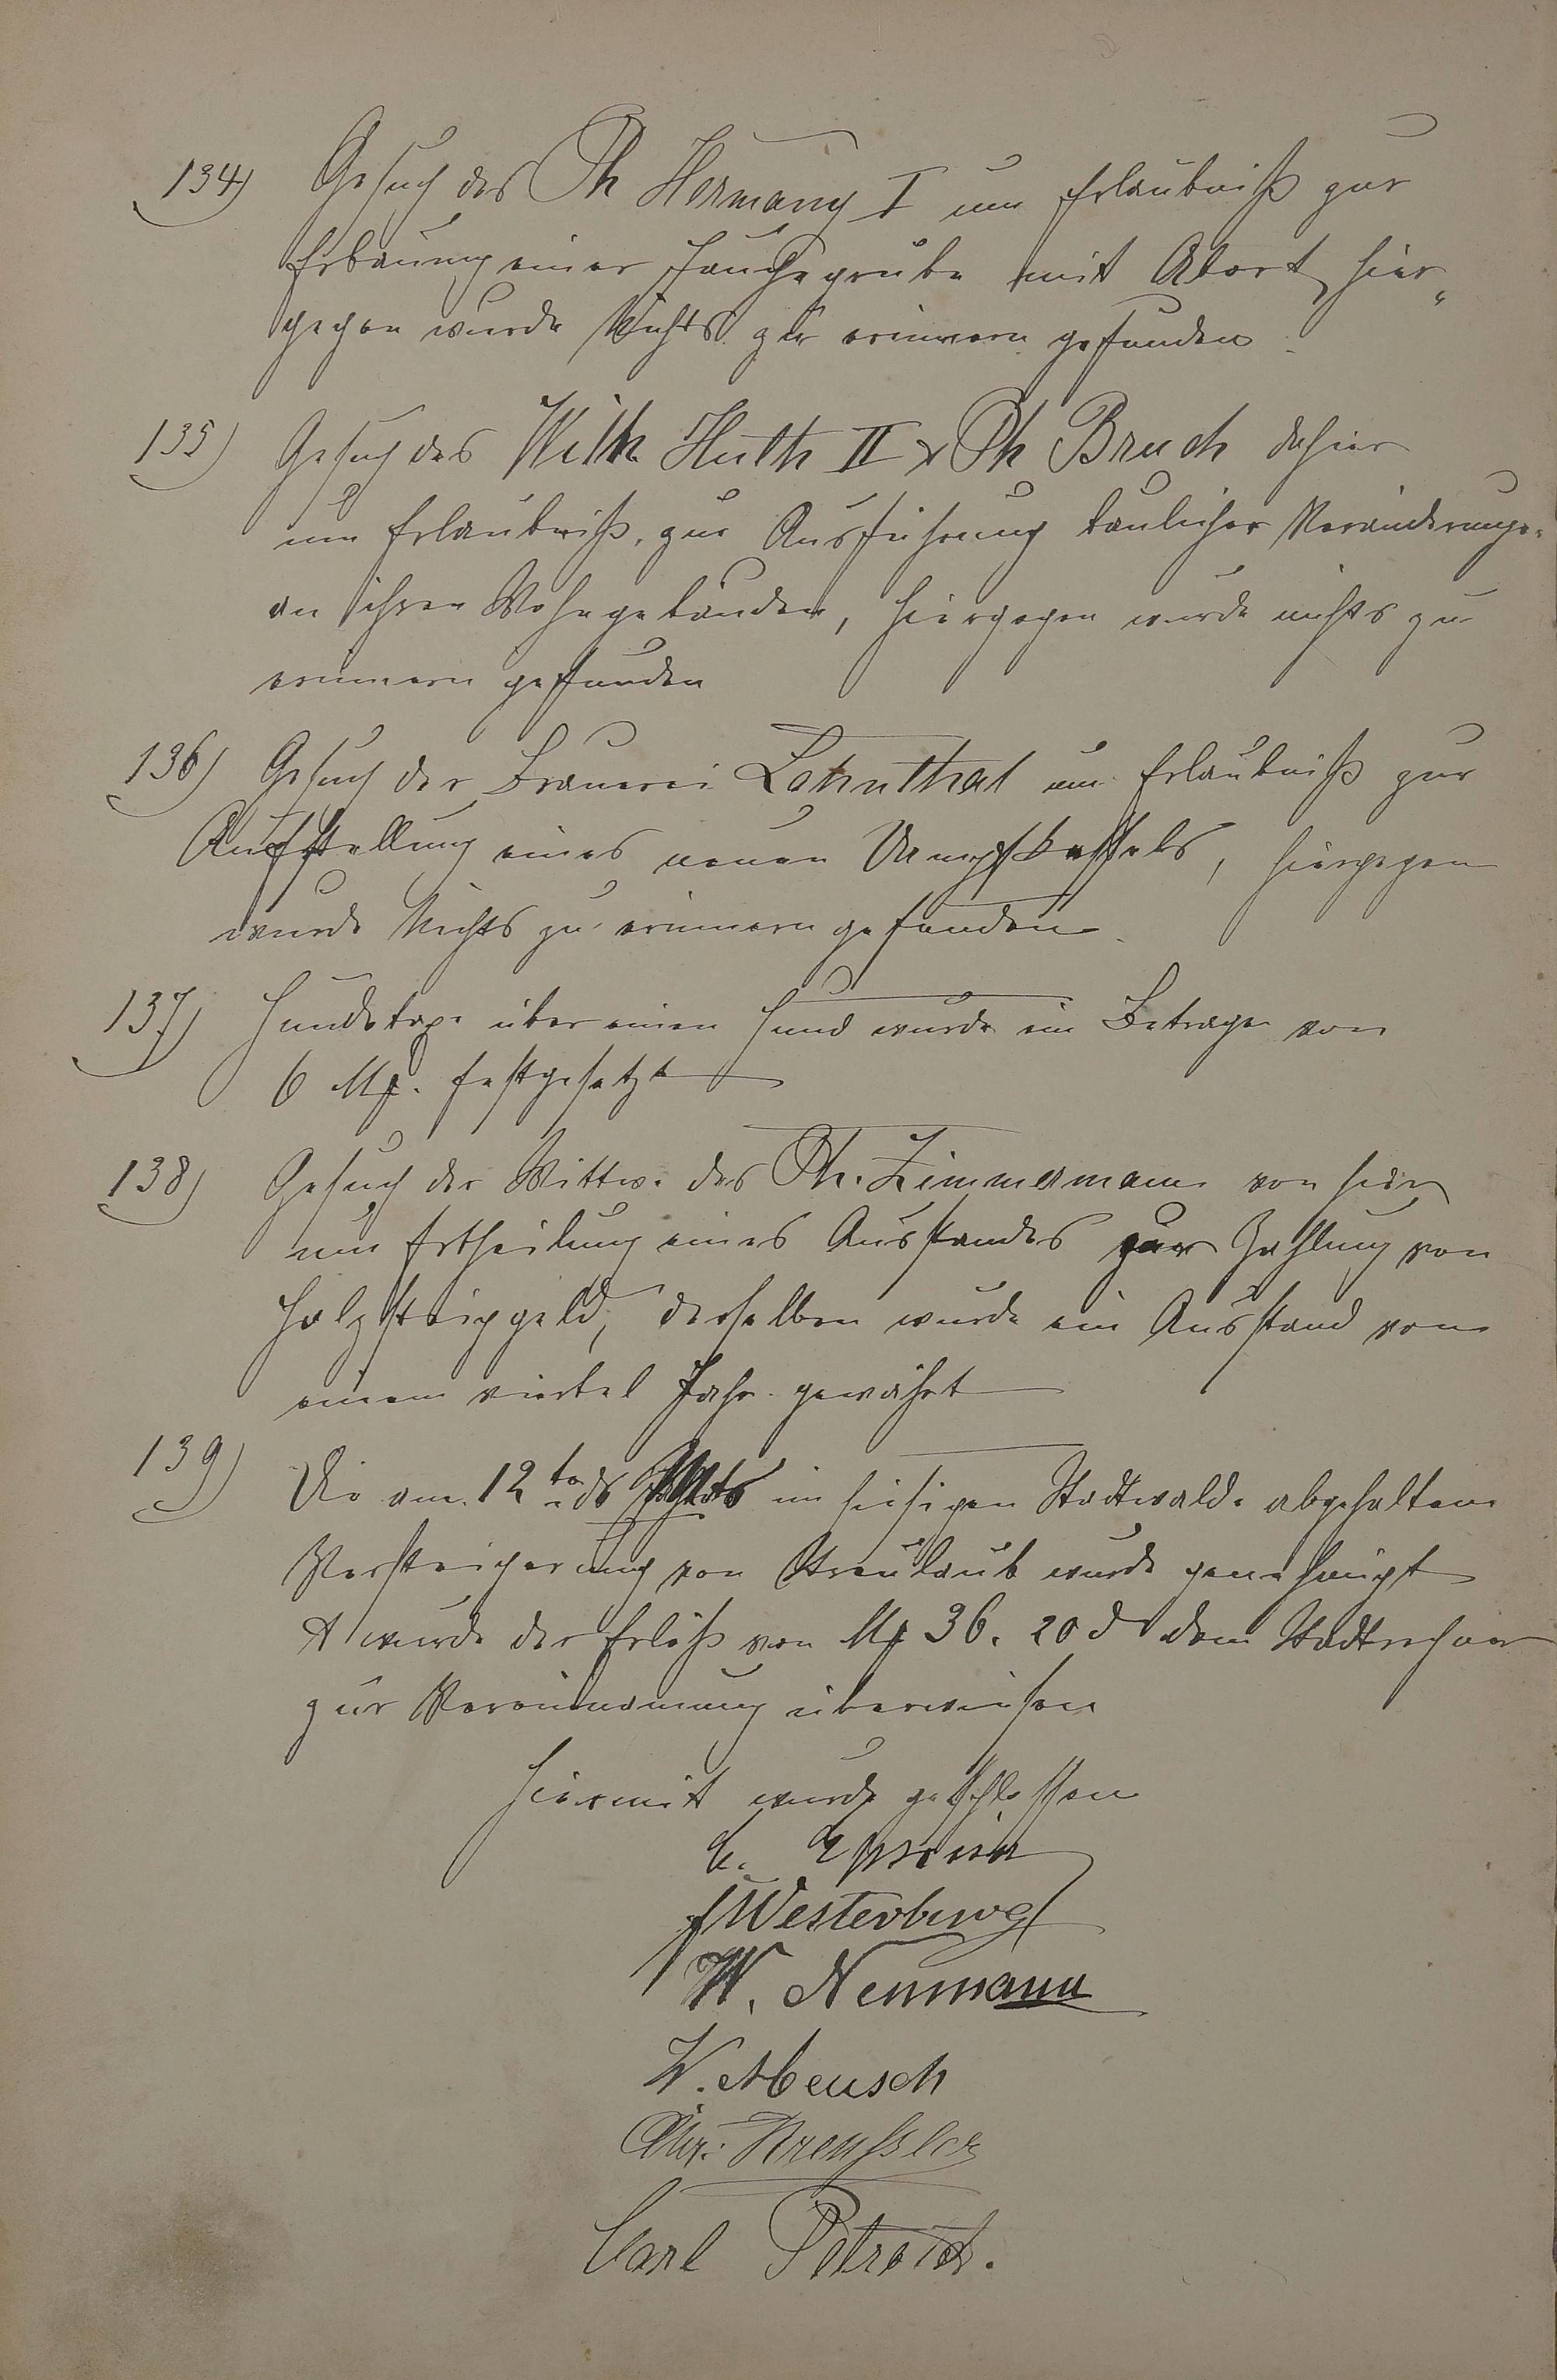 134) Gesuch des Ph Hermany I um Erlaubniß zur
Erbauung einer Jauchegrube mit Abort, hier„
gegen wurde Nichts zu erinnern gefunden.
135) Gesuch des Wilh. Huth II & Ph Bruch dahier
um Erlaubniß, zur Ausführung baulicher Veränderungen
an ihren Wohngebäuden, hiergegen wurde nichts zu
erinnern gefunden
136) Gesuch der Brauerei Lahnthal um Erlaubniß zur
Aufstellung eines neuen Dampfkessels, hiergegen
wurde Nichts zu erinnern gefunden.
137) Hundetaxe über einen Hund wurde im Betrage von
6 Mk. festgesetzt
138) Gesuch der Wittwe des Ph. Zimmermann von hier
um Ertheilung eines Ausstandes zur Zahlung von
Holzsteiggeld, derselben wurde ein Ausstand von
einem viertel Jahr gewährt
139) Die am 12ten ds Mts im hiesigen Stadtwalde abgehaltene
Versteigerung von Streulaub wurde genehmigt
& wurde der Erlöß von Mk 36. 20 d dem Stadtrechner
zur Vereinnamung überwiesen
Hiermit wurde geschlossen
C.
Westerburg
W. Neumann
W. Meusch
Chr. Kreußler
Carl